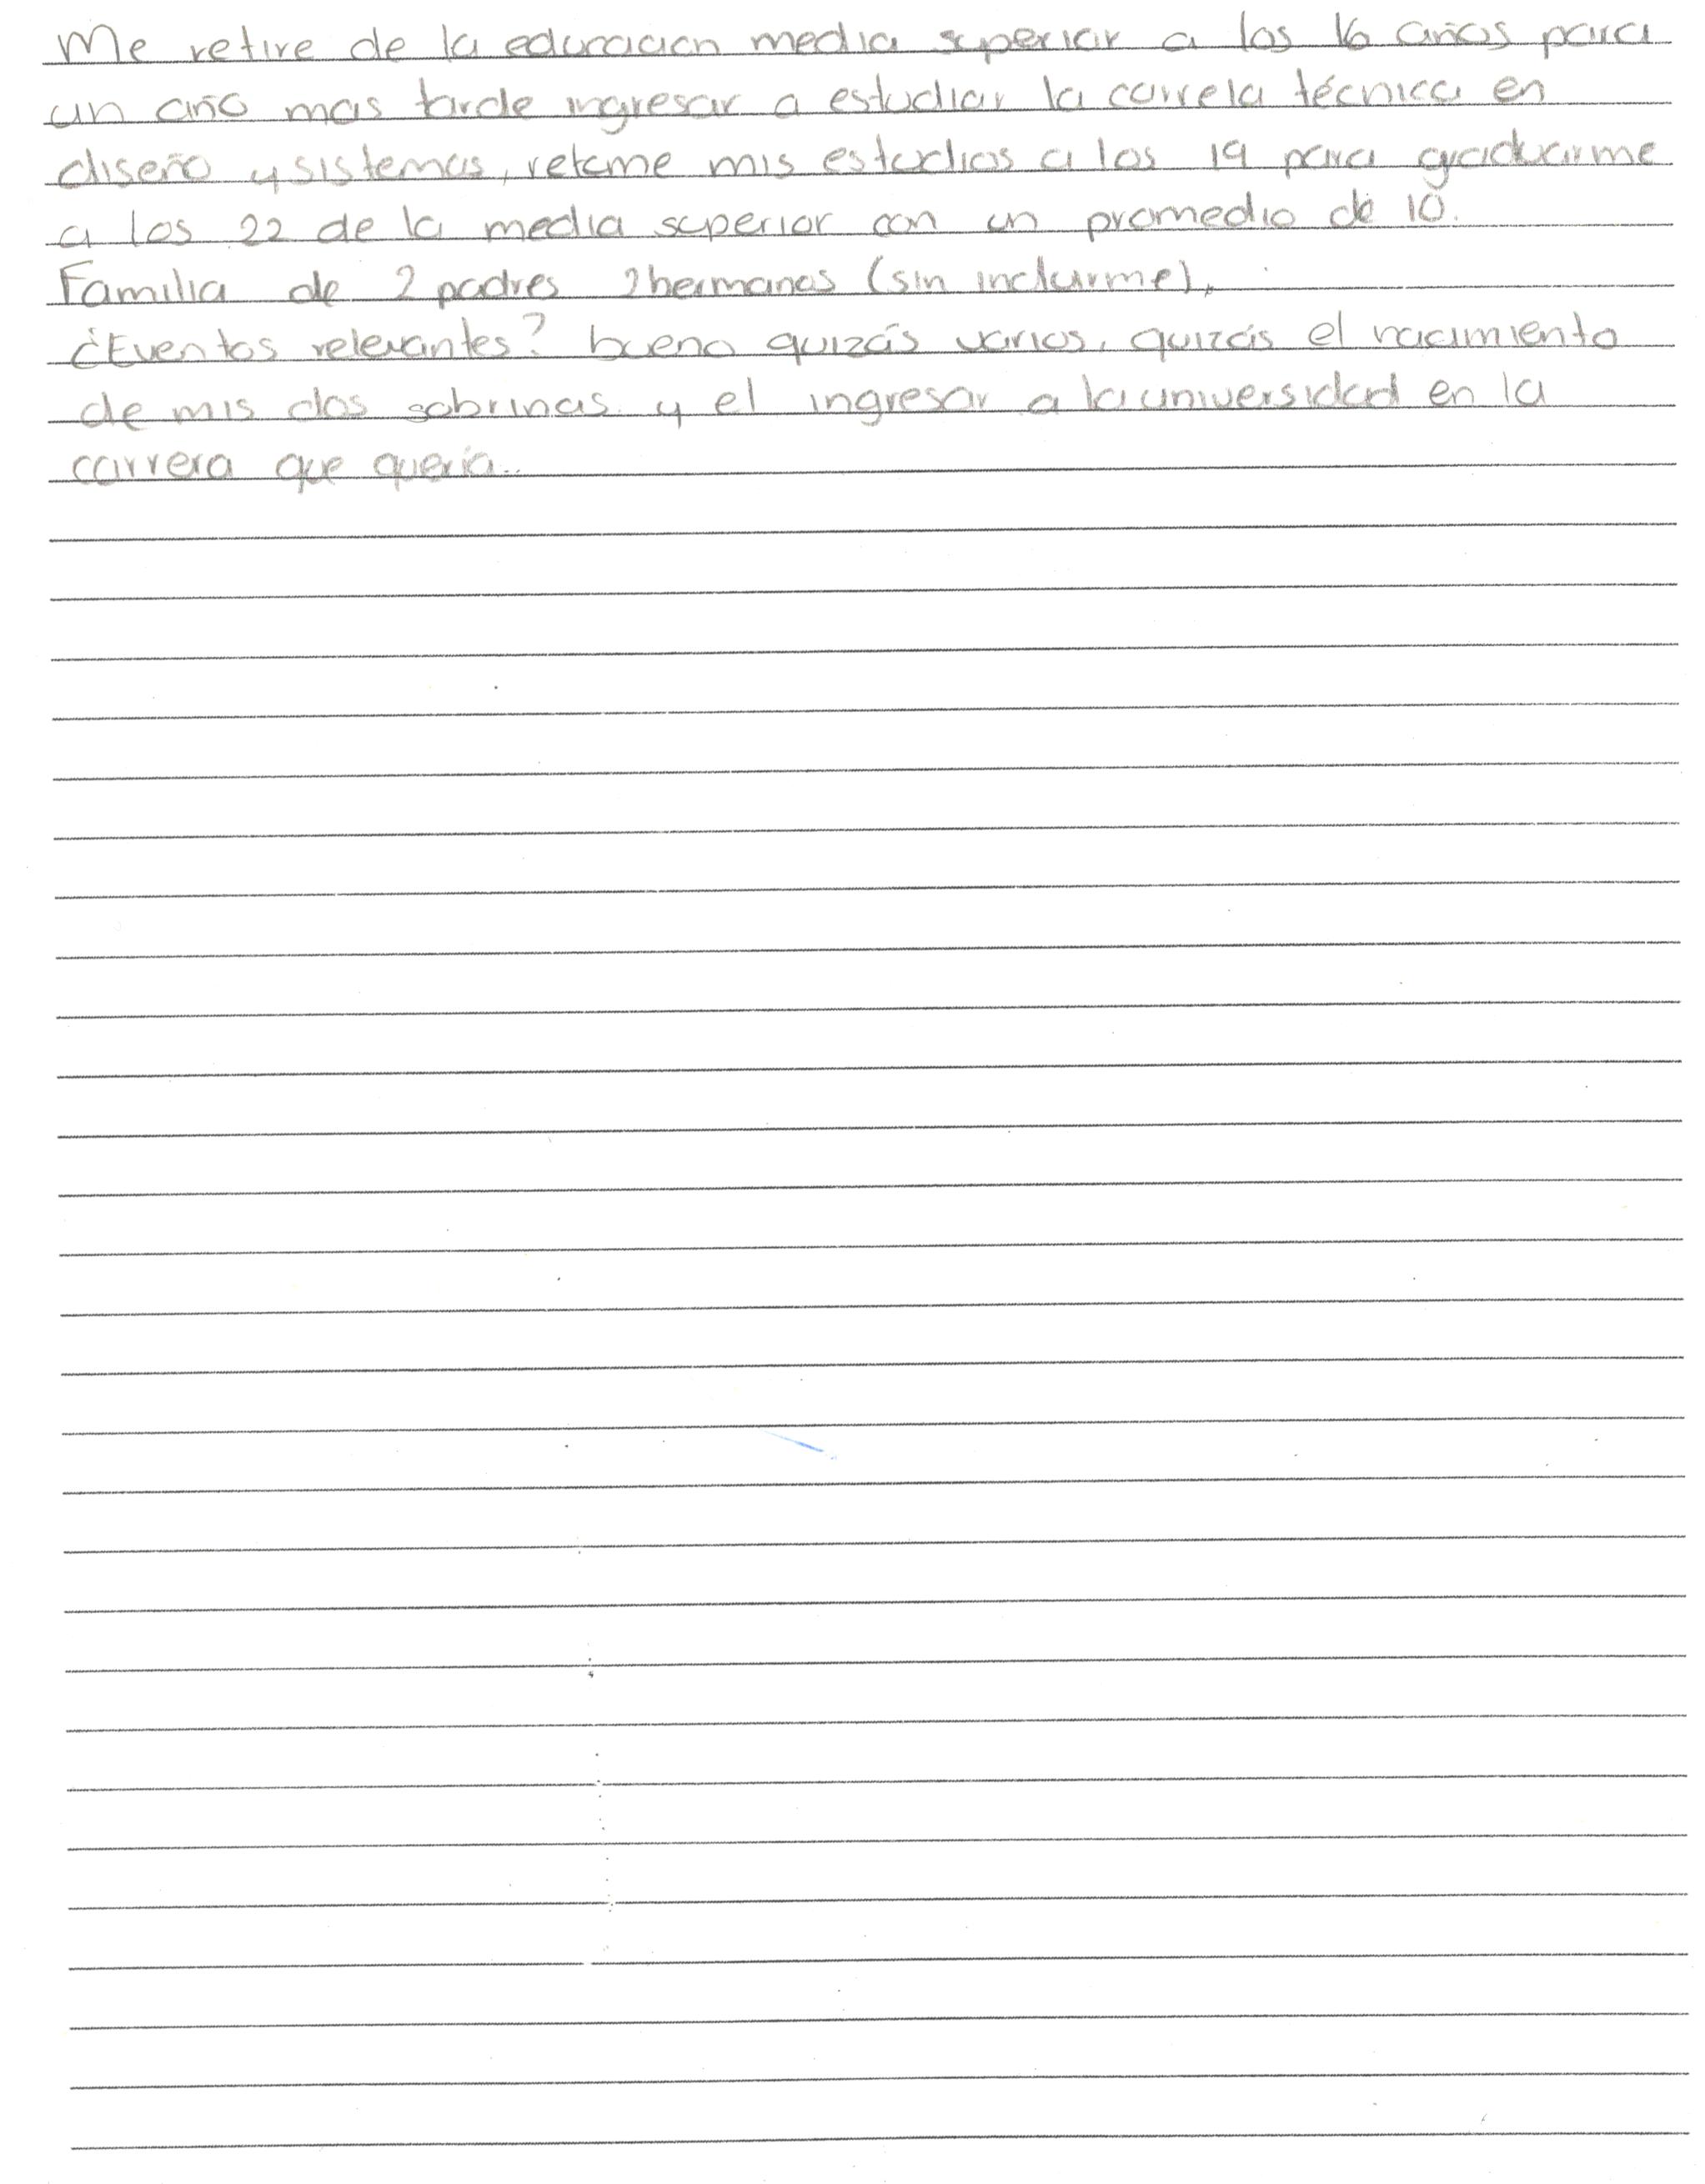 Me retire de la educacion media superior a los 16 años para
un año mas tarde ingresar a estudiar la carrela técnica en
diseño y sistemas, retome mis estudios a los 19 para graduarme
a los 22 de la media superior con un promedio de 10.
Familia de 2 padres 2 hermanos (sin incluirme).
¿Eventos relevantes? bueno quizás varios, quizás el nacimiento
de mis dos sobrinas y el ingresar a la universidad en la
carrera que quería..